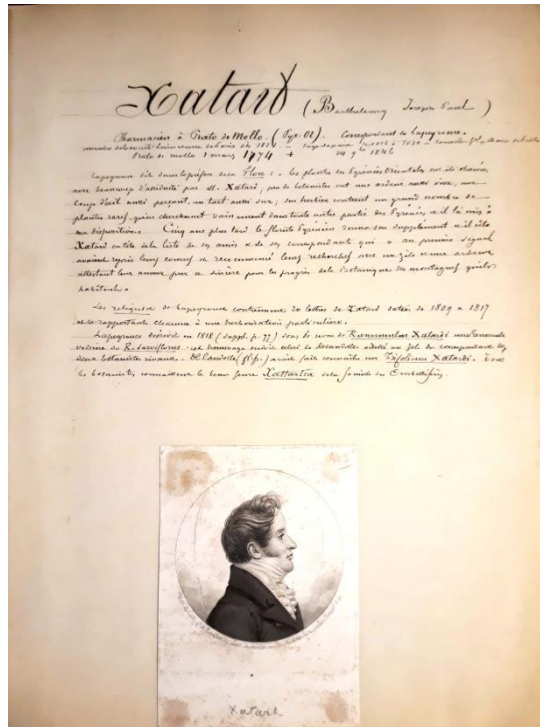 Xatard (Barthelemy Joseph Paul)
Pharmacien à Prats de Mollo. (Pyr. Or). Correspondant de Lapeyrouse.
Prats de mollo 1 mars 1774 + 24 9bre 1846
Lapeyrouse dit dans la préface de sa Flore : « les plantes des Pyrénées Orientales ont été observées,
avec beaucoup d'assiduité par M. Xatard ; peu de botanistes ont une ardeur aussi vive, un
coup d'œil aussi perçant, un tact aussi sur ; son herbier contient un grand nombre de
plantes rares, qu'on chercherait vainement dans toute autre partie des Pyrénées « il l'a mis à
ma disposition. Cinq ans plus tard le floriste Pyrénéen donne son supplément « il cite
Xatard en tête de la liste de ses amis & de ses correspondants qui « au premier signal
avaient repris leurs courses & recommencé leurs recherches avec un zèle & une ardeur
attestant leur amour pur & sincère pour les progrès de la botanique des montagnes qu'ils
habitent »
Les reliquiæ de Lapeyrouse contiennent des lettres de Xatard datées de 1809 à 1817
& se rapportant chacune à une herborisation particulière.
Lapeyrouse décrivit en 1818 (suppl. p. 77) sous le nom de Ranunculus Xatardi une
variété du R. parviflorus
deux botanistes rivaux. De Candolle (fl. fr.) avait fait connaître un Trifolium Xatardi. Tous
les botanistes connaissent le beau genre Xattardia de la famille des Ombellifères.
Xatart